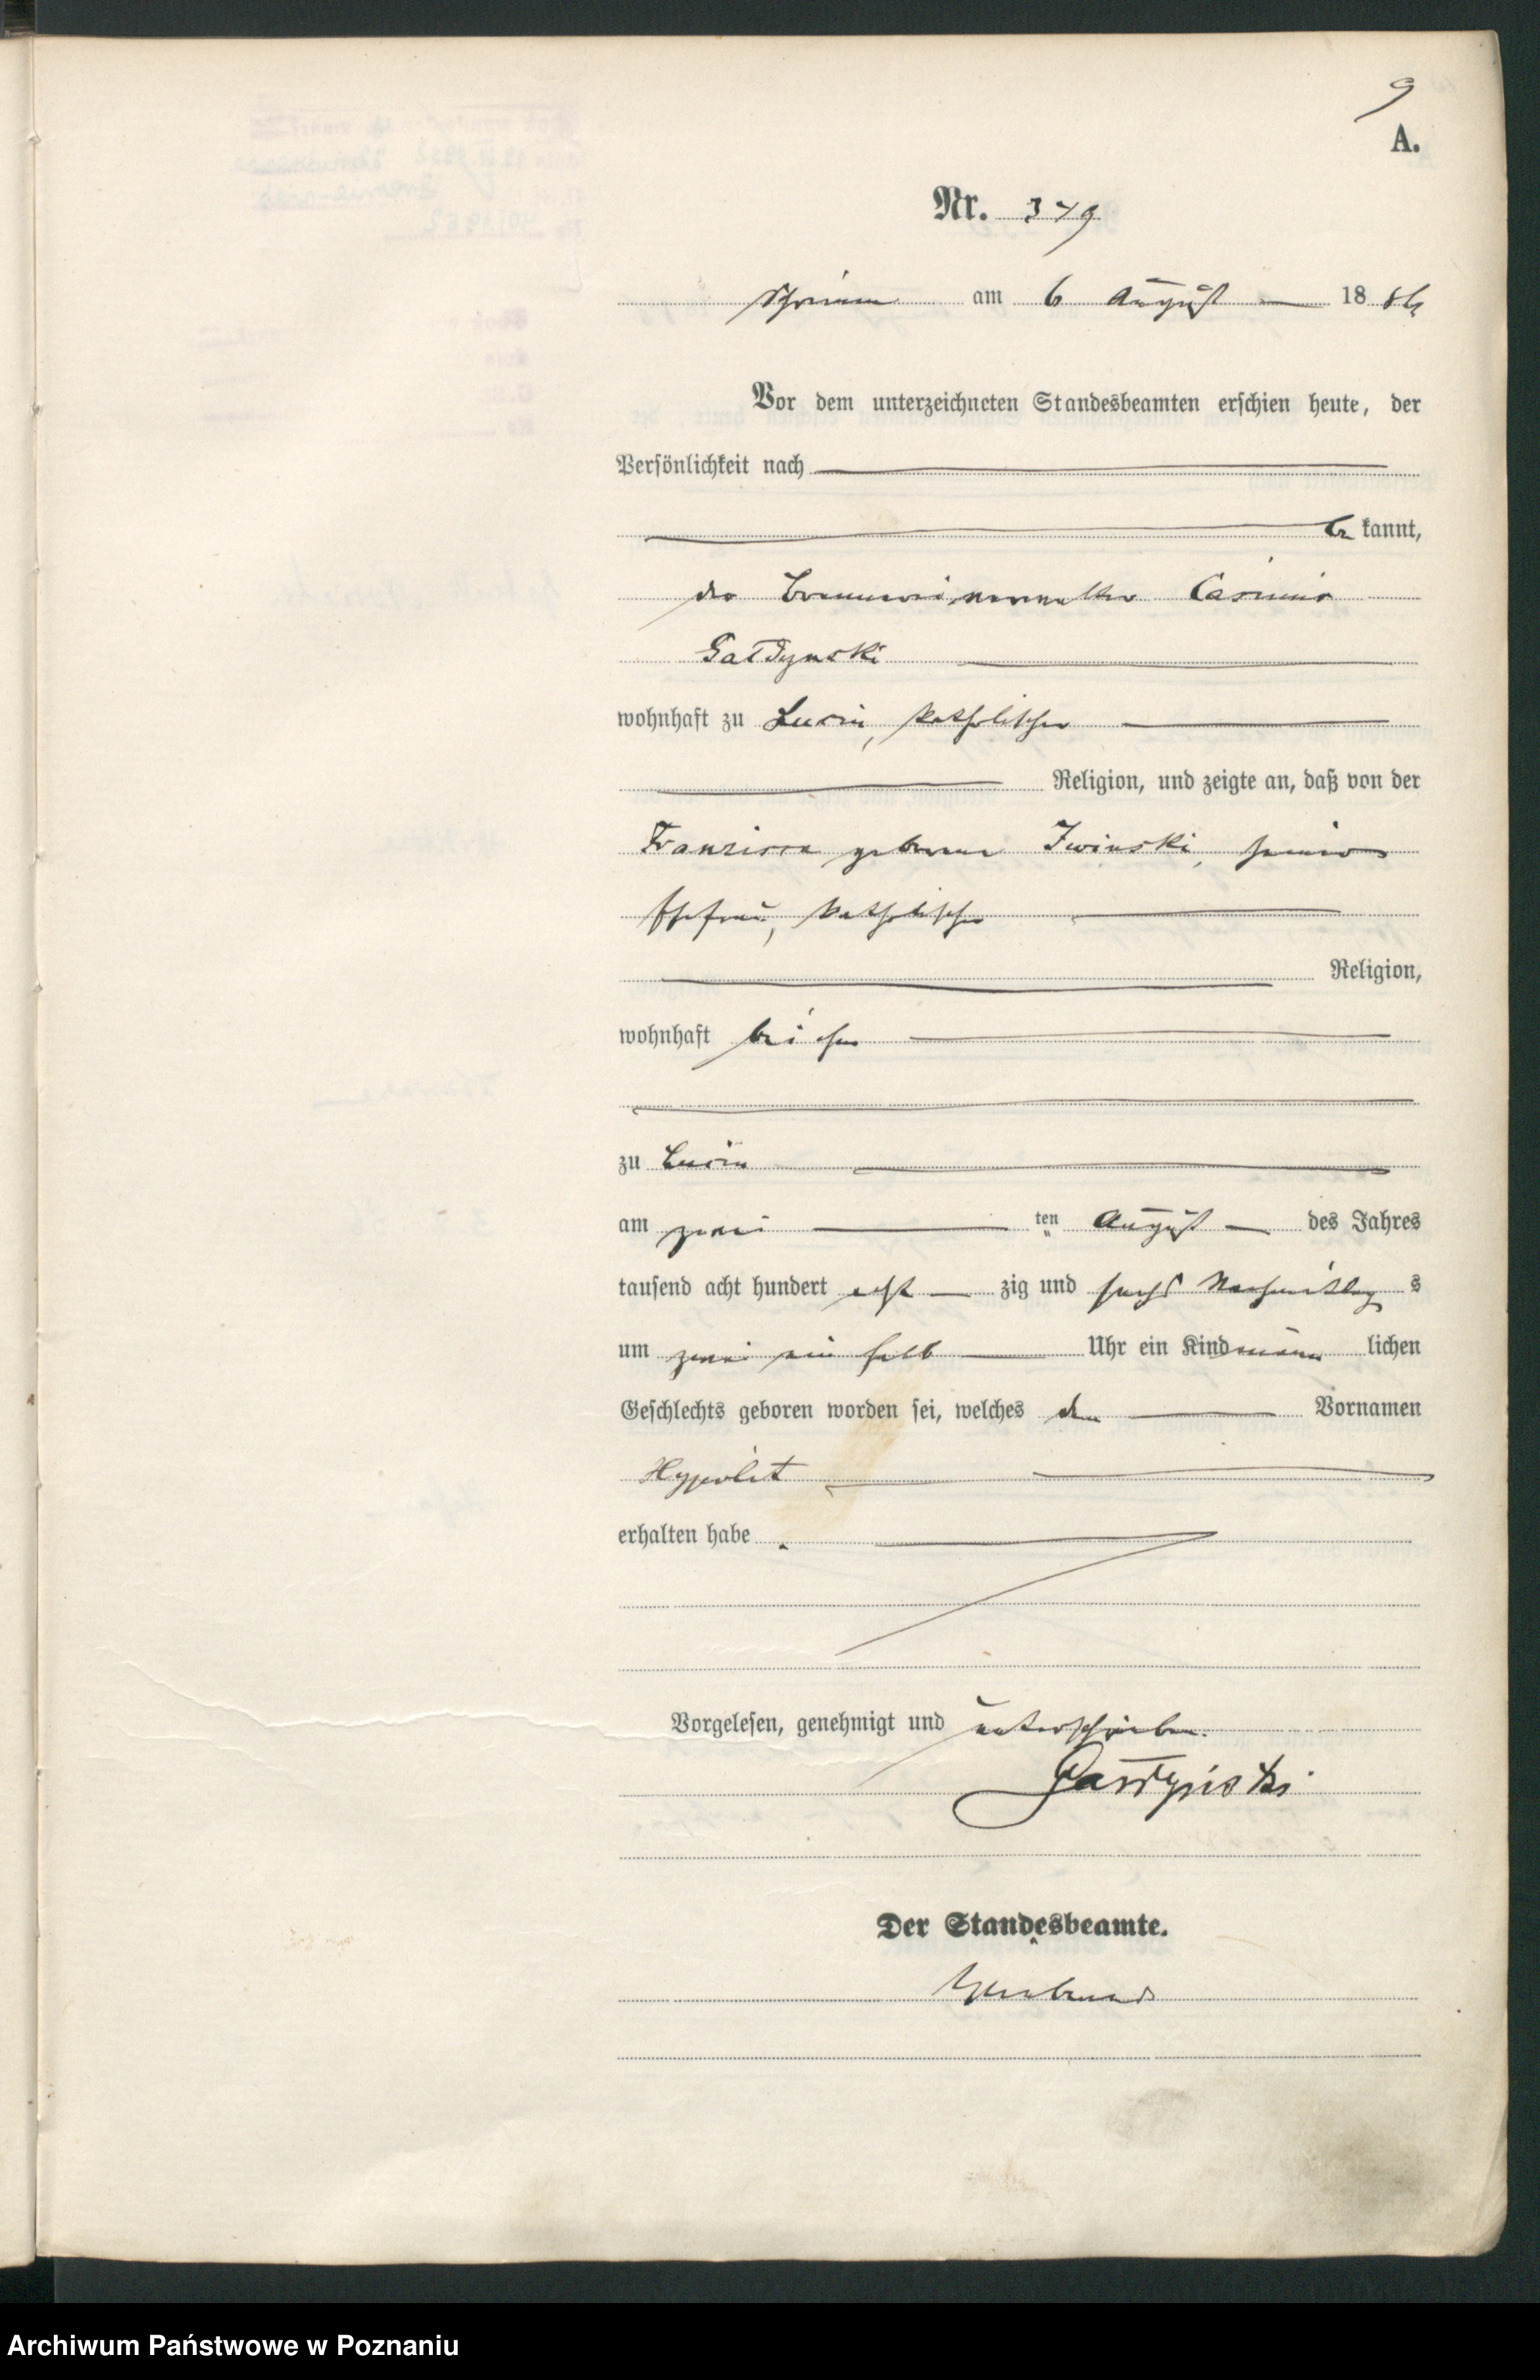 9
A.
Nr. 379
Schrimm am 6 August 1886
Vor dem unterzeichneten Standesbeamten erschien heute, der
Persönlichkeit nach
be kannt,
der Brennereiverwalter Casimir
Gałdynski
wohnhaft zu Lucin, katholischer
Religion, und zeigte an, daß von der
Franzisca geborene Iwinski, seiner
Ehefrau, katholischer
Religion,
wohnhaft bei ihm
zu Lucin
am zwei ten August des Jahres
tausend acht hundert acht zig und sechs Nachmittag s
um zwei ein halb Uhr ein Kind männ lichen
Geschlechts geboren worden sei, welches den Vornamen
Hyppolit
erhalten habe.
Vorgelesen, genehmigt und unterschrieben.
Der Standesbeamte.
Archiwum Państwowe w Poznaniu